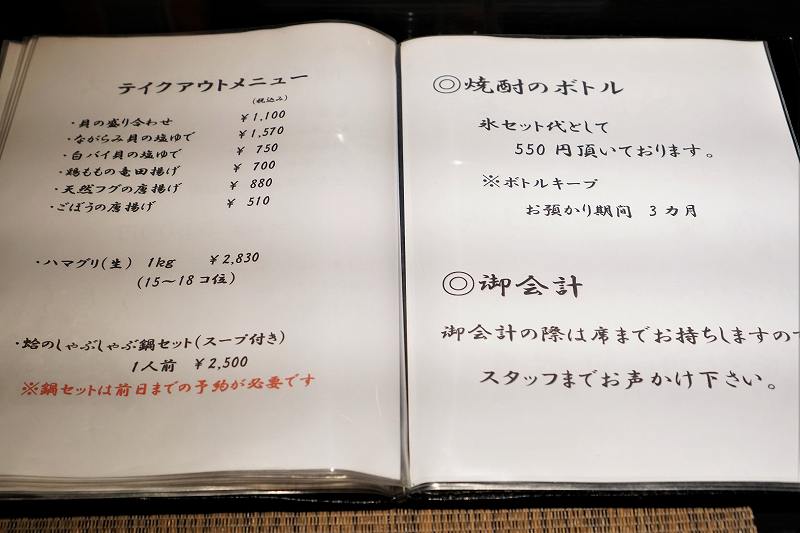 テイクアウトメニュー
(税込み)
・貝の盛り合わせ ¥1,100
・ながらみ貝の塩ゆで ¥1,570
・白バイ貝の塩ゆで ¥ 750
・鶏ももの竜田揚げ ¥ 700
・天然フグの唐揚げ ¥ 880
・ごぼうの唐揚げ ¥ 510
・ハマグリ(生) 1kg ¥2,830
(15～18コ位)
・蛤のしゃぶしゃぶ鍋セット(スープ付き)
1人前 ¥2,500
※鍋セットは前日までの予約が必要です
◎焼酎のボトル
氷セット代として
550円頂いております。
※ボトルキープ
お預かり期間 3カ月
◎御会計
御会計の際は席までお持ちしますので
スタッフまでお声かけ下さい。